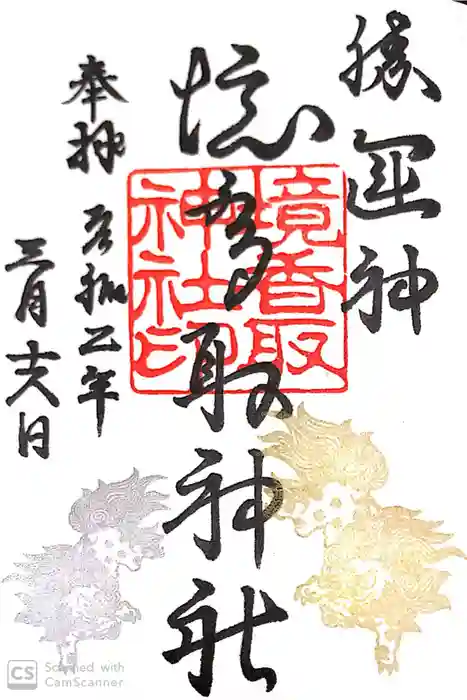 勝運神
境香取神社
境香取
神社印
奉拝
令和二年
三月十六日
CS Scanned with
CamScanner